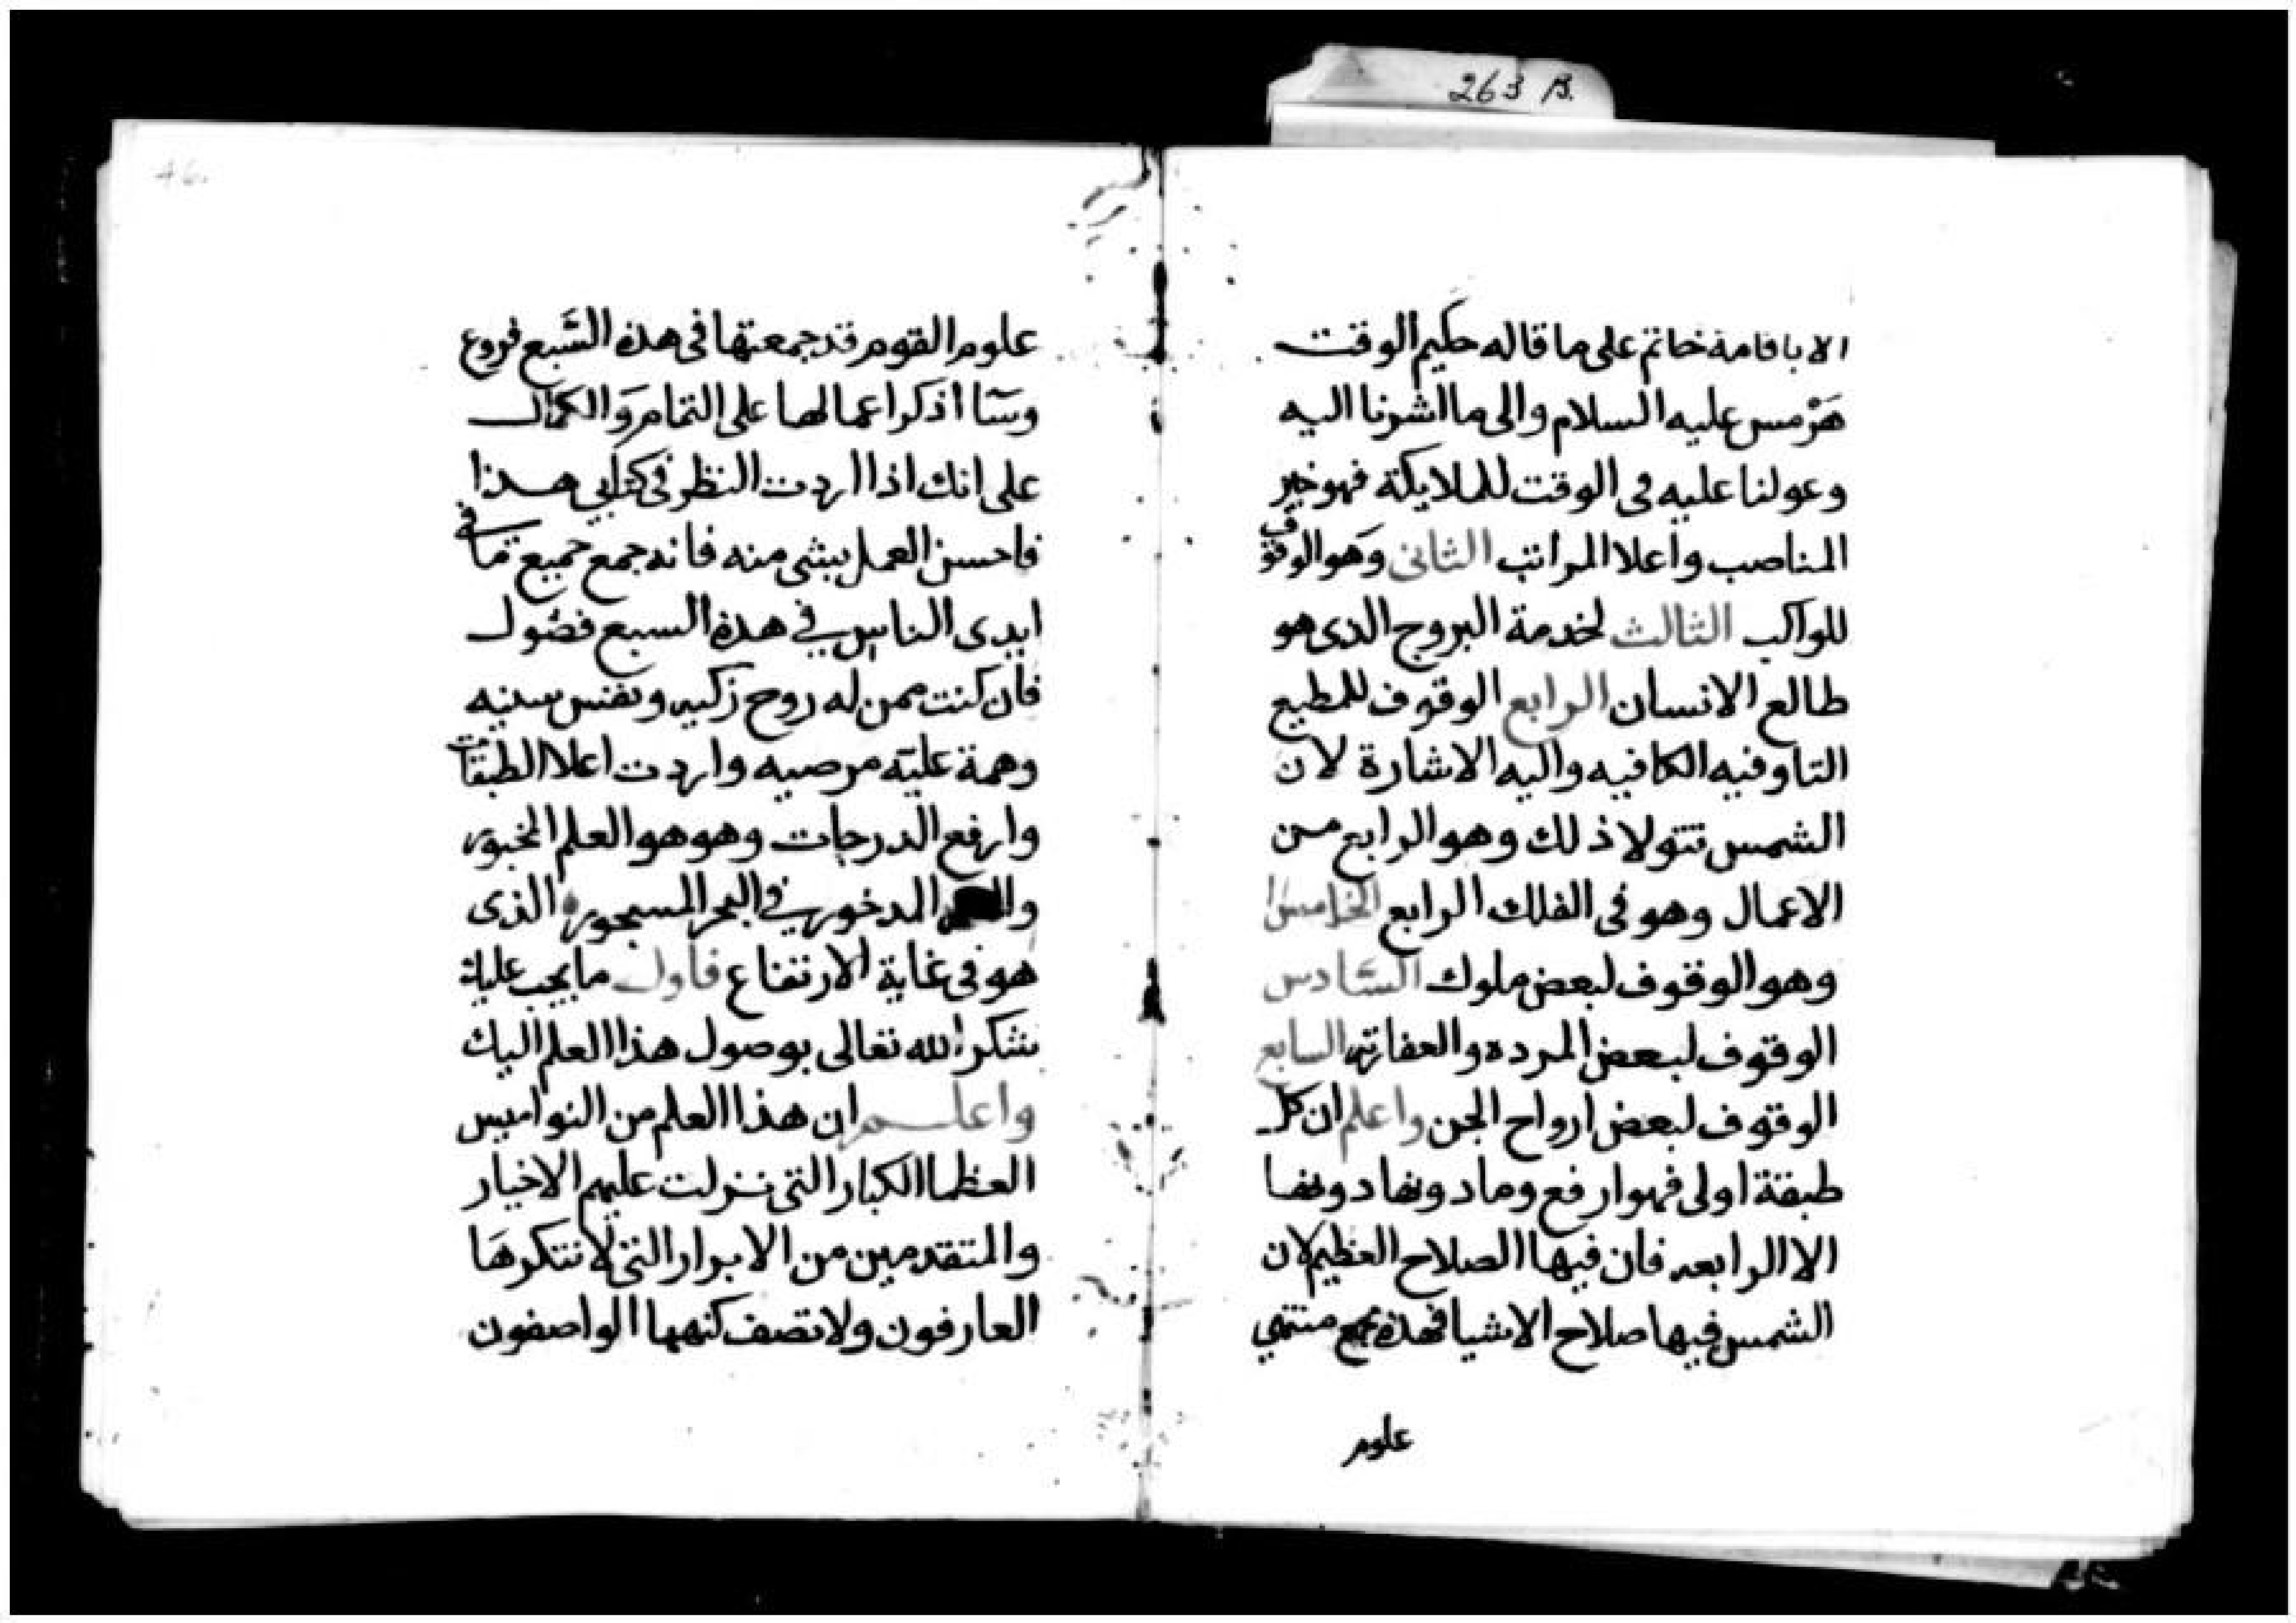 263 B.
الا باقامة خاتم على ما قاله حكيم الوقت
هَرْمس عليه السلام والى ما اشرنا اليه
وعولنا عليه فى الوقت للملايكة فهو خير
المناصب واعلا المراتب الثانى وهو الوقوف
للواكب الثالث لخدمة البروج الدى هو
طالع الانسان الرابع الوقوف للمطيع
التاوفيه الكافيه واليه الاشارة لان
الشمس تتولا ذلك وهو الرابع من
الاعمال وهو فى الفلك الرابع الخامس
وهو الوقوف لبعض ملوك السادس
الوقوف لبعض المرده والعفارته السابع
الوقوف لبعض ارواح الجن واعلم ان كل
طبقة اولى فهو ارفع وما دونها دونها
الا الرابعه فان فيها الصلاح العظيم لان
الشمس فيها صلاح الاشيا فهذه جميع منتهي
علوم
46.
علوم القوم قد جمعتها فى هذه السَّبع فروع
وسَا اذكر اعمالها على التمام وَالكمال
على انك اذا اردت النظر فى كتابي هذا
فاحسن العمل بشى منه فانه جمع جميع ما فى
ايدى الناس في هذه السبع فصُول
فان كنت ممن له روح زكيه ونفس سنيه
وهمة عليَه مرصيه واردت اعلا الطبقات
وارفع الدرجات وهو هو العلم المخبور
المدخور في البحر المسجور الذى
هو فى غاية الارتفاع فاول ما يجب عليك
شكر الله تعالى بوصول هذا العلم اليك
واعلم ان هذا العلم من النواميس
العظما الكبار التى نزلت عليهم الاخيار
والمتقدمين من الابرار التى لا نتكرهَا
العارفون ولا تصف كنهها الواصفون